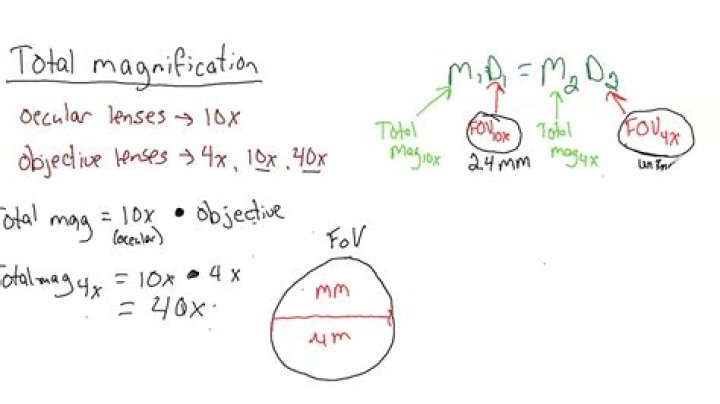 Total magnification
Occular lenses → 10x
Objective lenses → 4x, 10x, 40x
Total mag = 10x • objective
(occular)
Total mag 4x = 10x • 4x
= 40x
M1D1 = M2D2
Total mag10x
FOV10x
2.4mm
Total mag4x
FOV4x
FoV
mm
μm